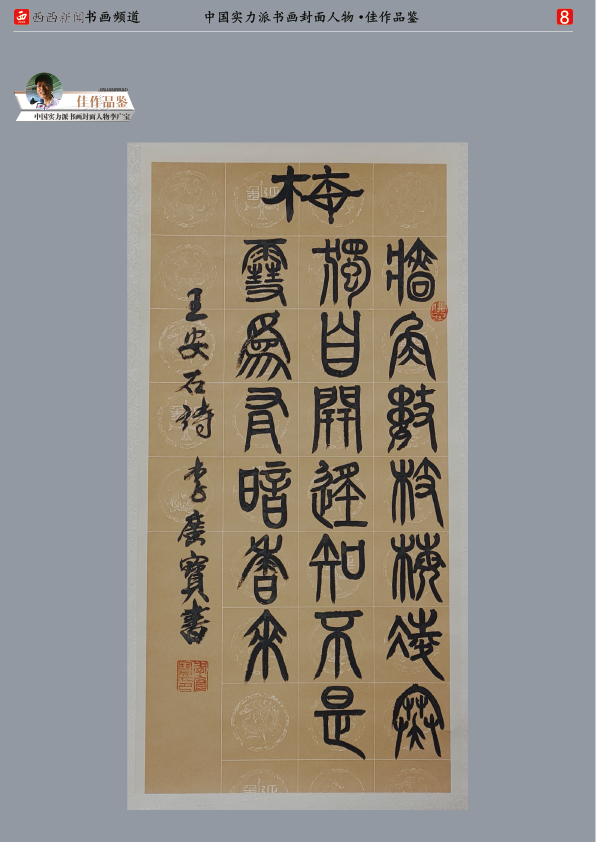 西西新闻书画频道
中国实力派书画封面人物·佳作品鉴
8
佳作品鉴
中国实力派书画封面人物李广宝
梅
牆角數枝梅凌寒
獨自開遥知不是
雪爲有暗香來
王安石詩 李廣寶書